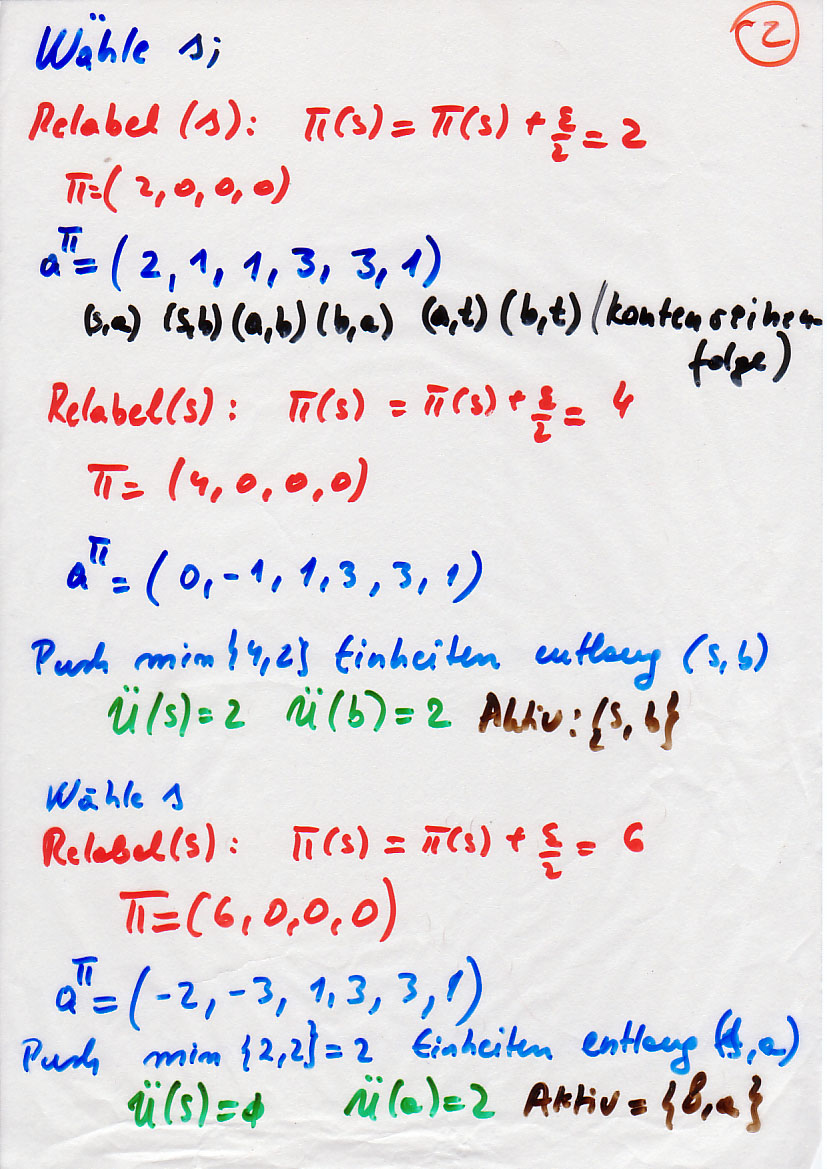 2
Wähle s;
Relabel (s): π(s) = π(s) + ε/2 = 2
π = (2, 0, 0, 0)
a^π = (2, 1, 1, 3, 3, 1)
(s,a) (s,b) (a,b) (b,a) (a,t) (b,t) (kantenreihen-
folge)
Relabel(s): π(s) = π(s) + ε/2 = 4
π = (4, 0, 0, 0)
a^π = (0, -1, 1, 3, 3, 1)
Push min{4,2} Einheiten entlang (s,b)
Ü(s)=2 Ü(b)=2 Aktiv: {s, b}
Wähle s
Relabel(s): π(s) = π(s) + ε/2 = 6
π = (6, 0, 0, 0)
a^π = (-2, -3, 1, 3, 3, 1)
Push min {2,2} = 2 Einheiten entlang (s,a)
Ü(s)=0 Ü(a)=2 Aktiv = {b,a}